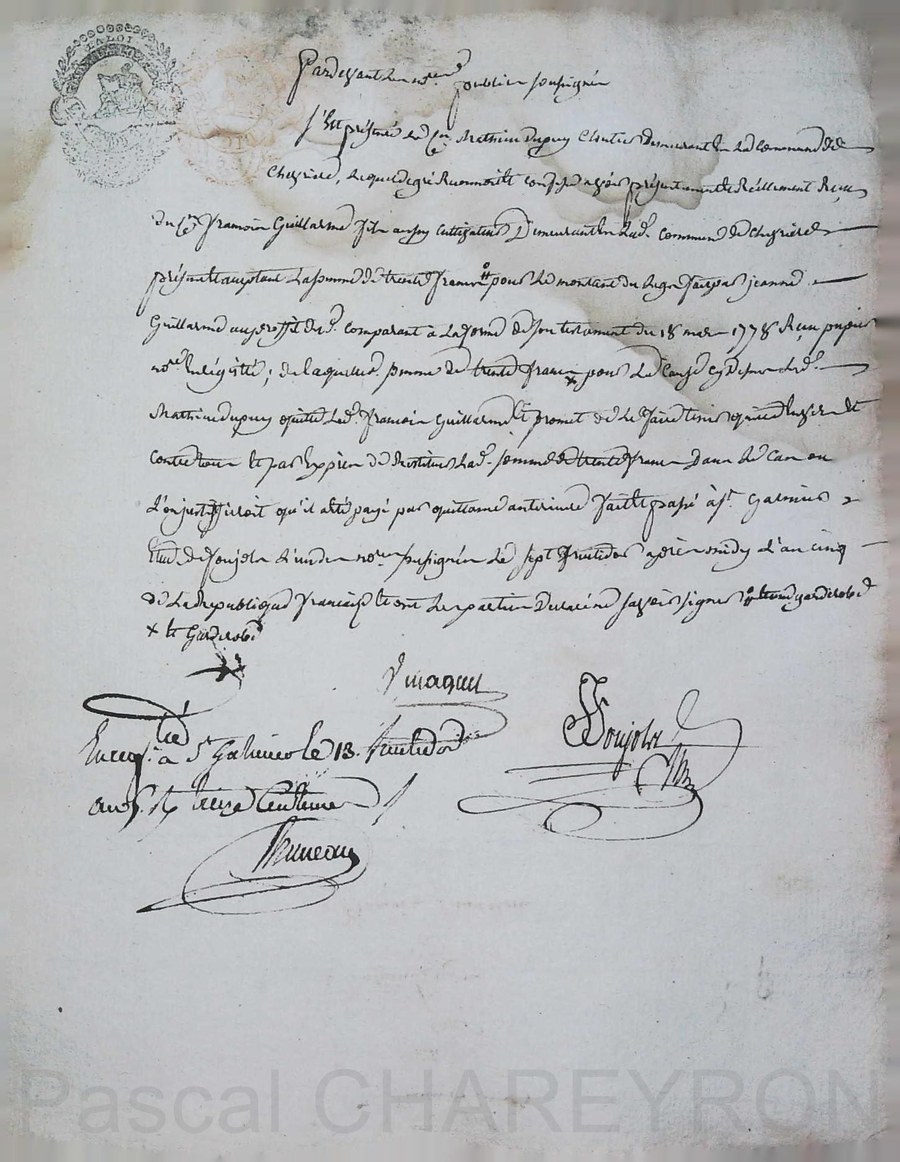 LA LOI
Pardevant le no.re public soussigné
S'est présenté le C.en Mathieu Dupuy demeurant en la commune de
Chevrière, lequel de gré confesse avoir présentement Réellement Reçu
du C.en François Guillarme fils cultivateur Demeurant en lad.e commune de Chevrière
présent acceptant La somme de trente francs pour le montant du legs fait par jeanne
Guillarme au proffit dud. comparant à la forme de son testament du 18 mar 1778 Reçu
no.re ; de laquelle somme de trente francs pour la cause cy dessus led.
Mathieu dupuy quitte led. François Guillarme et promet de le faire tenir quitte envers et
contre tous et par Exprès de Restituer lad. somme de trente francs Dans le cas ou
L'on justiffieroit qu'il a été payé par quittance antérieure fait et passé à S.t Galmier
Etude de Soujol L'un des no.res soussignés le sept fructidor après midy L'an cinq
de La République française et ont Les parties Declaré savoir signer
Soujol
Enreg.té à S.t Galmier le 13. fructidor
an 5. treize Centimes
Bruneau
Pascal CHAREYRON